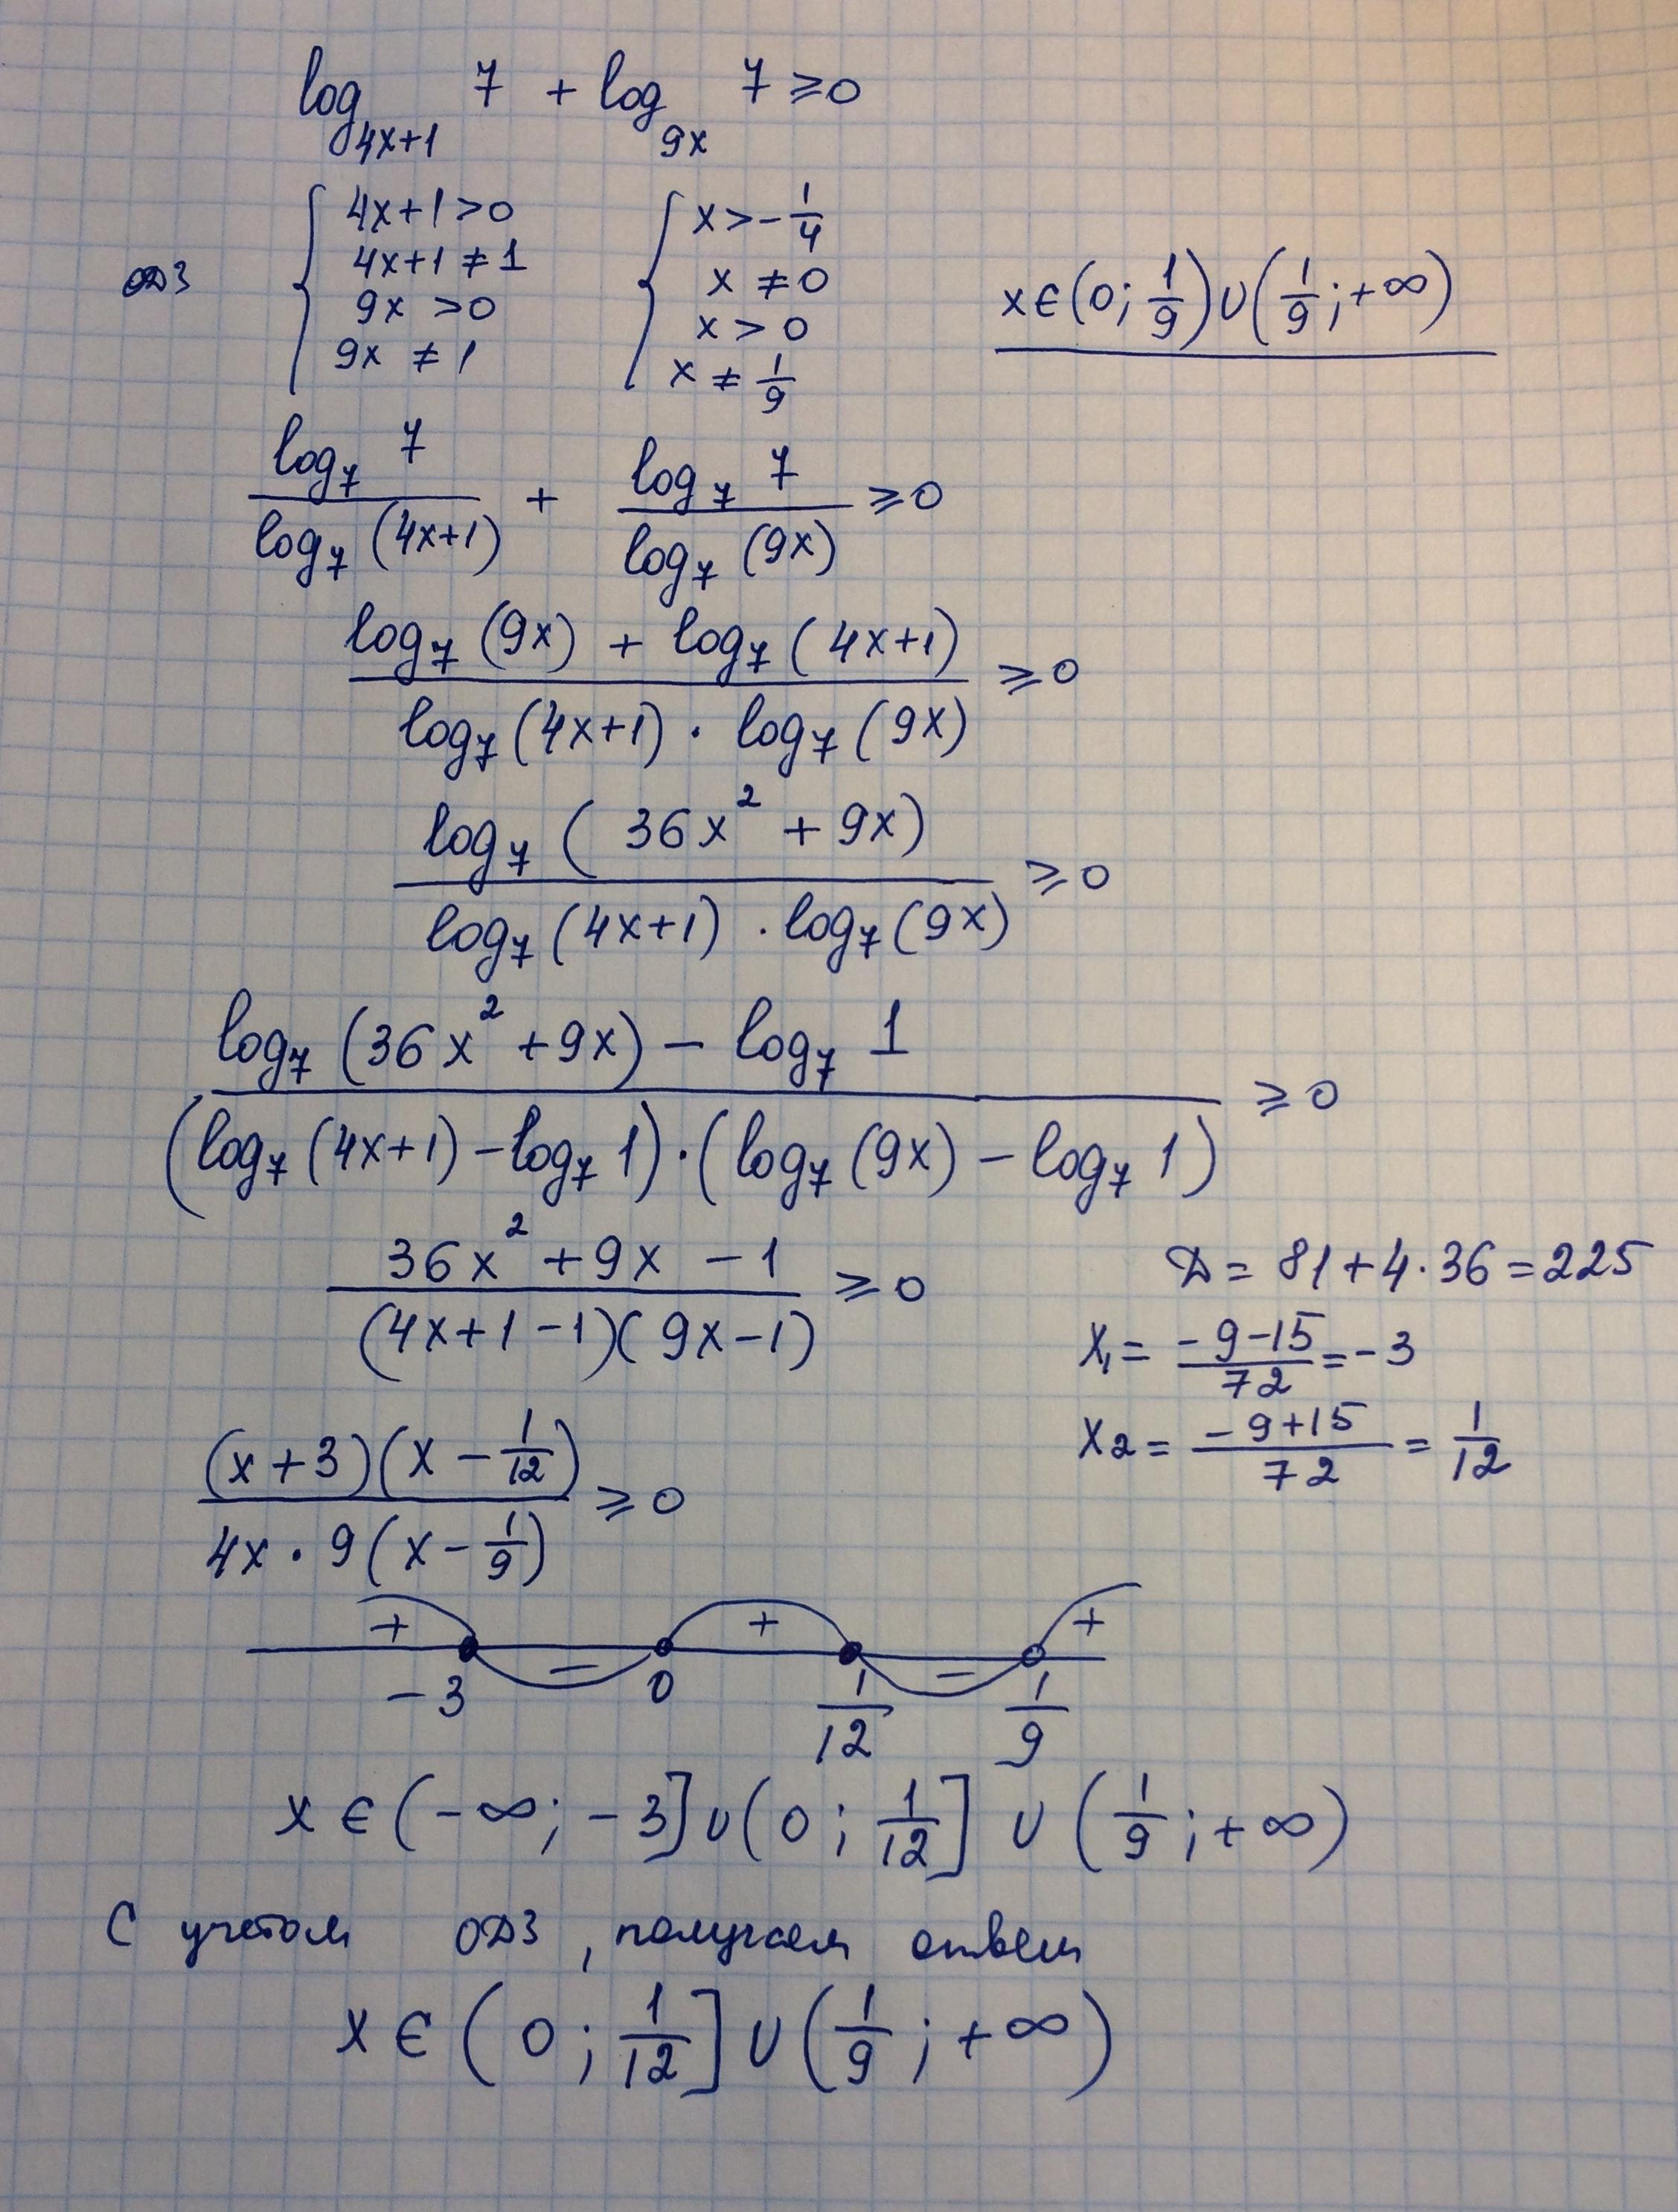 log₄ₓ₊₁ 7 + log₉ₓ 7 ⩾ 0
ОДЗ { 4x+1>0 { x>-1/4
4x+1≠1 x≠0 x∈(0; 1/9)∪(1/9; +∞)
9x>0 x>0
9x≠1 x≠1/9
log₇ 7 / log₇ (4x+1) + log₇ 7 / log₇ (9x) ⩾ 0
(log₇ (9x) + log₇ (4x+1)) / (log₇ (4x+1) · log₇ (9x)) ⩾ 0
log₇ (36x² + 9x) / (log₇ (4x+1) · log₇ (9x)) ⩾ 0
(log₇ (36x² + 9x) - log₇ 1) / ((log₇ (4x+1) - log₇ 1) · (log₇ (9x) - log₇ 1)) ⩾ 0
(36x² + 9x - 1) / ((4x+1-1)(9x-1)) ⩾ 0
D = 81 + 4·36 = 225
x₁ = (-9-15)/72 = -3
x₂ = (-9+15)/72 = 1/12
(x+3)(x - 1/12) / (4x · 9(x - 1/9)) ⩾ 0
+ − + − +
-3 0 1/12 1/9
x ∈ (-∞; -3] ∪ (0; 1/12] ∪ (1/9; +∞)
С учетом ОДЗ, получаем ответ
x ∈ (0; 1/12] ∪ (1/9; +∞)